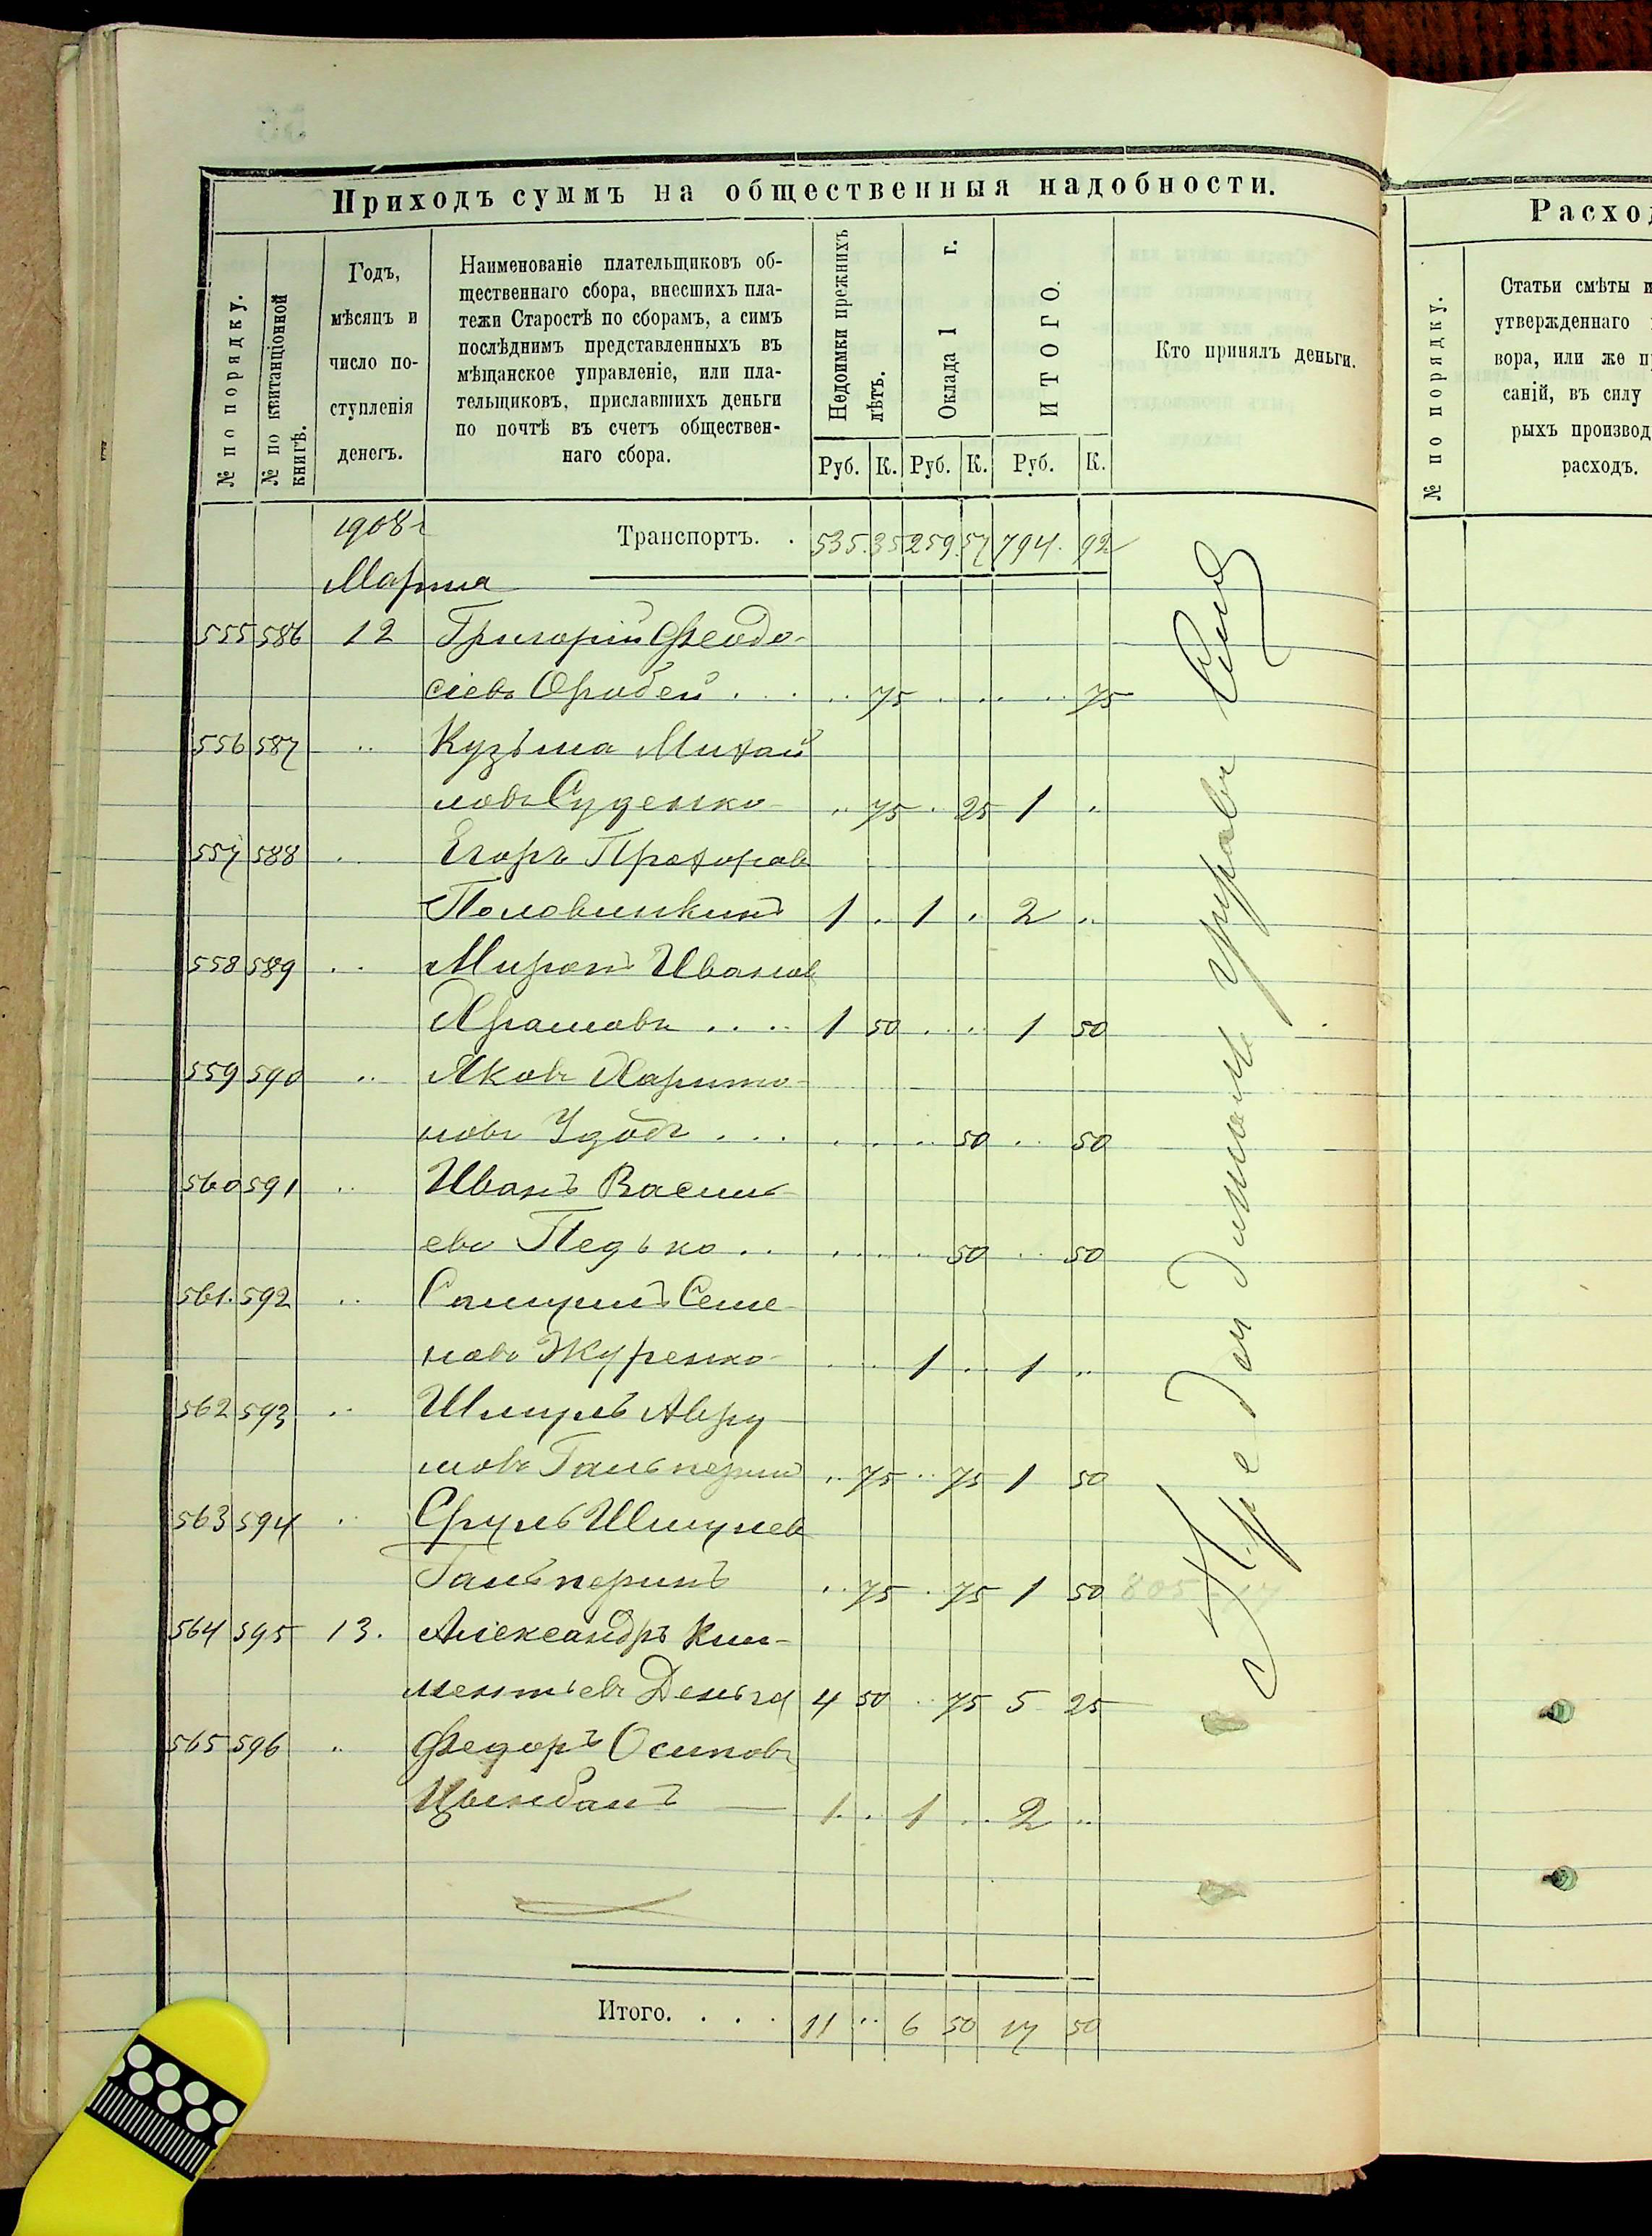 Приходъ суммъ на общественныя надобности.
№ по порядку.
№ по квитанціонной книгѣ.
Годъ,
мѣсяцъ и
число по-
ступленія
денегъ.
Наименованіе плательщиковъ об-
щественнаго сбора, внесшихъ пла-
тежи Старостѣ по сборамъ, а симъ
послѣднимъ представленныхъ въ
мѣщанское управленіе, или пла-
тельщиковъ, приславшихъ деньги
по почтѣ въ счетъ обществен-
наго сбора.
Недоимки прежнихъ лѣтъ.
Оклада 1 г.
ИТОГО.
Кто принялъ деньги.
Руб. К. Руб. К. Руб. К.
1908 г Транспортъ. . 535. 35 259. 57 794. 92
Марта
555 586 12 Григорій Феодо-
сіевъ Оробей . . . .. 75 . .. .. 75
556 587 .. Кузьма Михай
ловъ Суденко .. 75 . 25 1 ..
557 588 .. Егоръ Прохоровъ
Половинкинъ 1 . 1 . 2 ..
558 589 .. Миронъ Ивановъ
Храмовъ . . . . 1 50 . .. 1 50
559 590 .. Яковъ Харито-
новъ Удодъ . . . . . .. 50 .. 50
560 591 .. Иванъ Василь
евъ Педько . . . . . 50 .. 50
561. 592 .. Самуилъ Семе-
новъ Журенко . .. 1 .. 1 ..
562 593 .. Шмуль Авру
мовъ Гальперинъ .. 75 .. 75 1 50
563 594 .. Сруль Шмулевъ
Гальперинъ .. 75 . 75 1 50
564 595 13. Александръ Кли-
ментьевъ Деньга 4 50 .. 75 5 25
565 596 .. Федоръ Осиповъ
Цымбалъ — 1 . 1 .. 2 ..
Итого. . . . 11 .. 6 50 17 50
Расход
№ по порядку.
Статьи смѣты и
утвержденнаго
вора, или же п
саній, въ силу
рыхъ производ
расходъ.